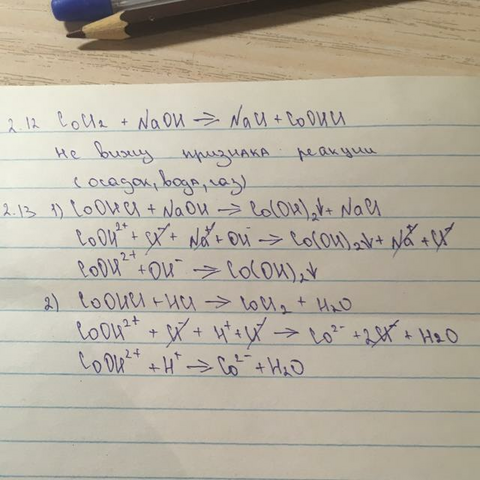 2.12 CoCl₂ + NaOH → NaCl + CoOHCl
Не вижу признака реакции
(осадок, вода, газ)
2.13 1) CoOHCl + NaOH → Co(OH)₂↓ + NaCl
CoOH²⁺ + Cl⁻ + Na⁺ + OH⁻ → Co(OH)₂↓ + Na⁺ + Cl⁻
CoOH²⁺ + OH⁻ → Co(OH)₂↓
2) CoOHCl + HCl → CoCl₂ + H₂O
CoOH²⁺ + Cl⁻ + H⁺ + Cl⁻ → Co²⁻ + 2Cl⁻ + H₂O
CoOH²⁺ + H⁺ → Co²⁻ + H₂O